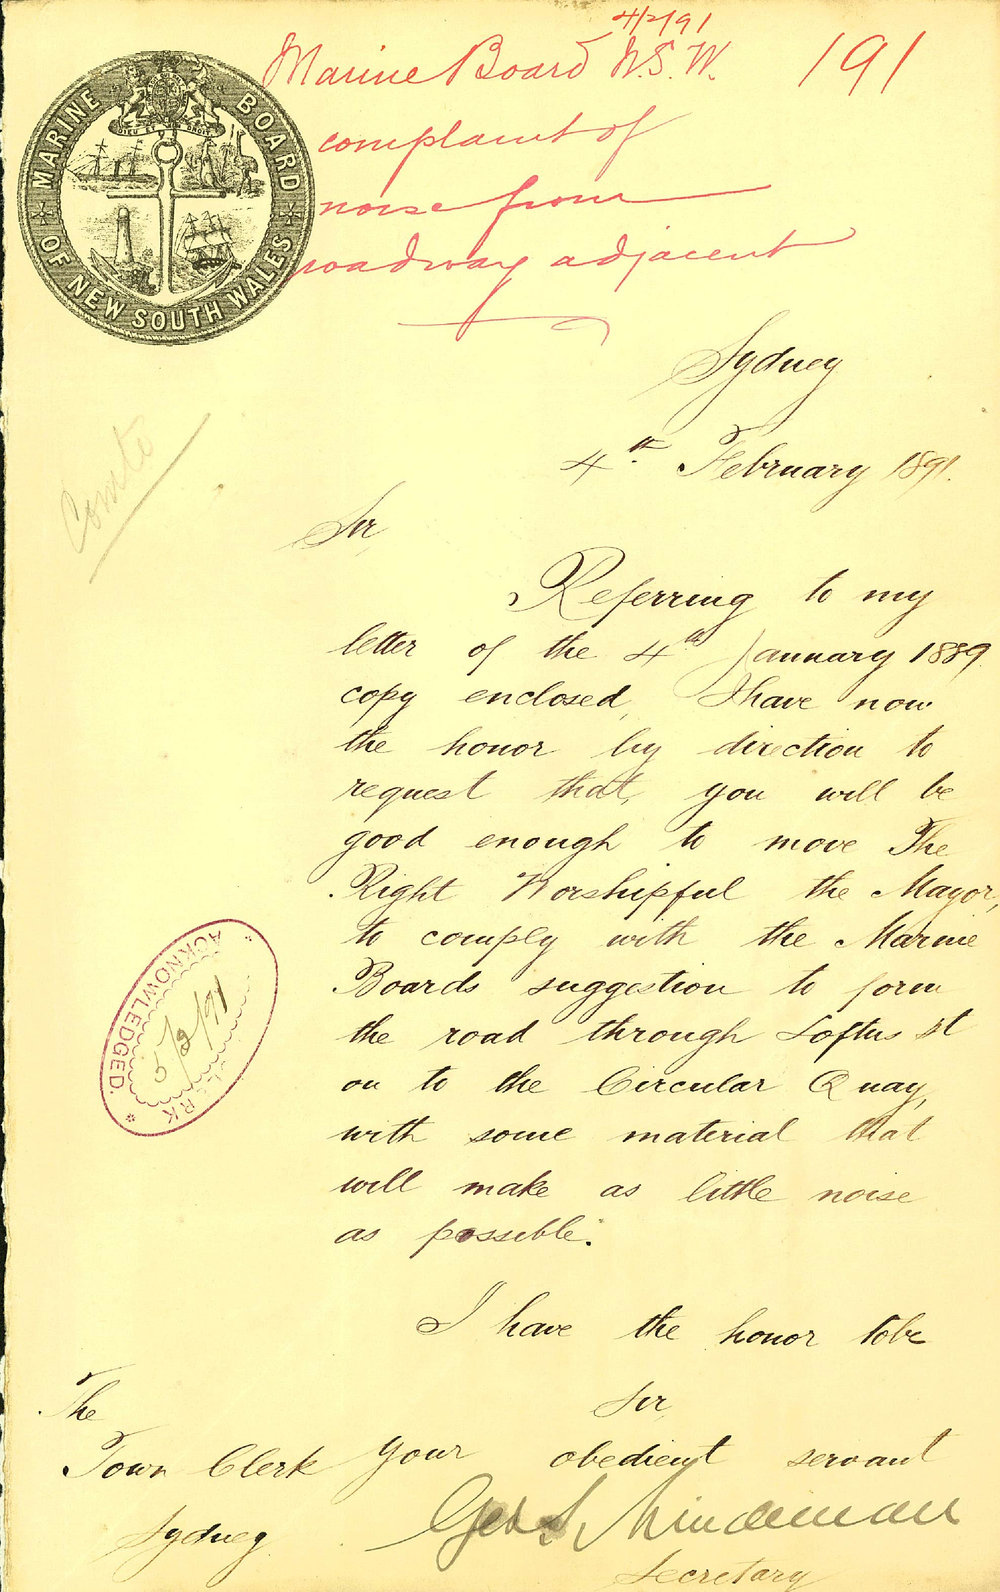 4/2/91
Marine Board N.S.W. 191
complaint of
noise from
roadway adjacent
MARINE BOARD
OF NEW SOUTH WALES
DIEU ET MON DROIT
Sydney
4th February 1891.
Comte
Sir,
Referring to my
letter of the 4th January 1889
copy enclosed, I have now
the honor by direction to
request that, you will be
good enough to move The
Right Worshipful the Mayor,
to comply with the Marine
Boards suggestion to form
the road through Loftus St
on to the Circular Quay,
with some material that
will make as little noise
as possible.
ACKNOWLEDGED.
5/2/91
I have the honor to be
Sir,
Your obedient servant
Geo S. Lindeman
Secretary
The
Town Clerk
Sydney